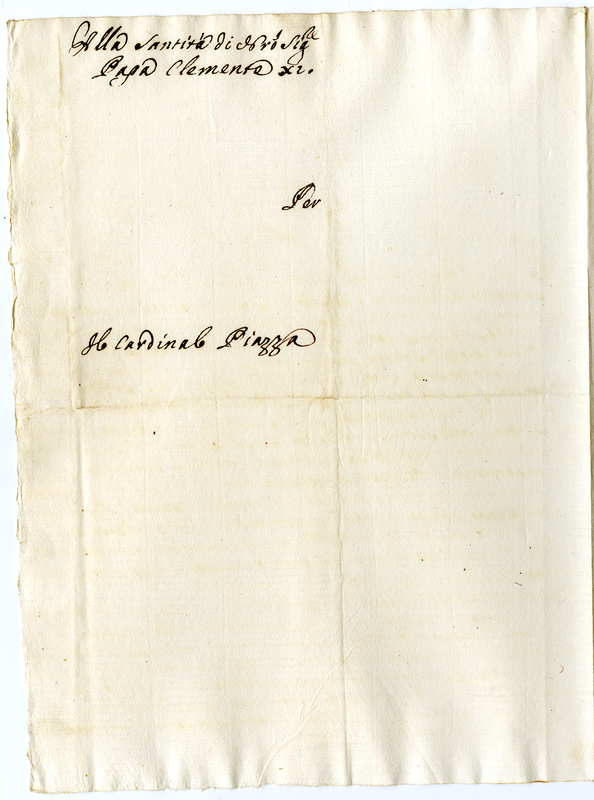 Alla Santità di Nrõ Sig.re
Papa Clemente XI.
Per
Il Cardinal Piazza